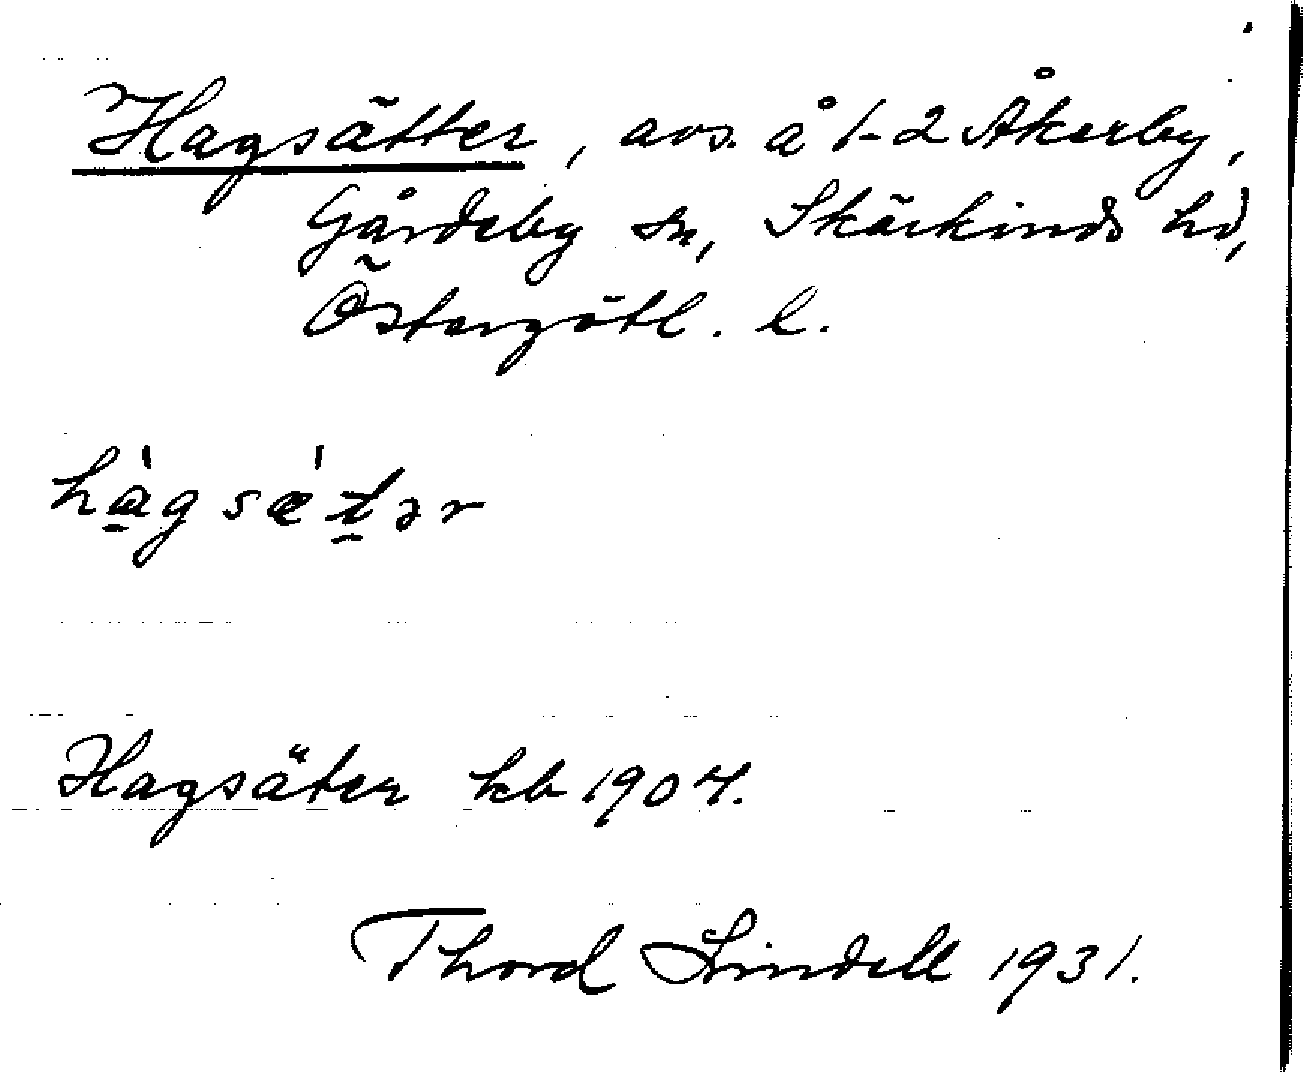 Hagsätter, avs. å 1-2 Åkerby,
Gårdeby sn, Skärkinds hd,
Östergötl. l.
hàgsǽtər
Hagsäter kb 1907.
Thord Lindell 1931.